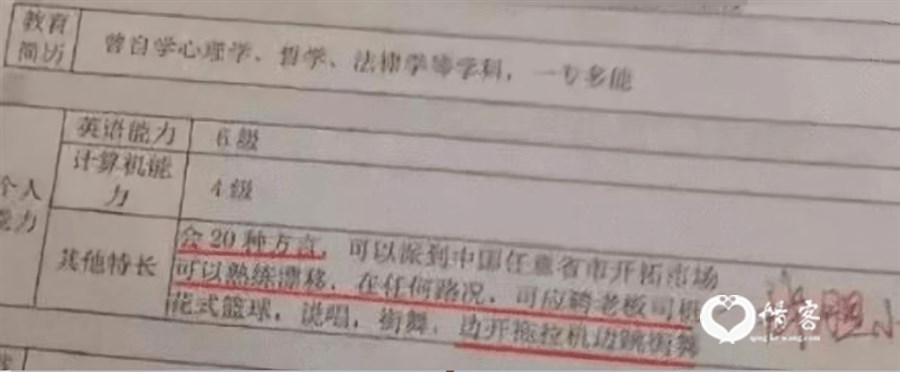 教育
简历
曾自学心理学、哲学、法律学等学科，一专多能
英语能力
6级
计算机能
力
4级
个人
能力
其他特长
会20种方言，可以派到中国任意省市开拓市场
可以熟练漂移，在任何路况，可应聘老板司机
花式篮球，说唱，街舞，边开拖拉机边跳街舞
情客